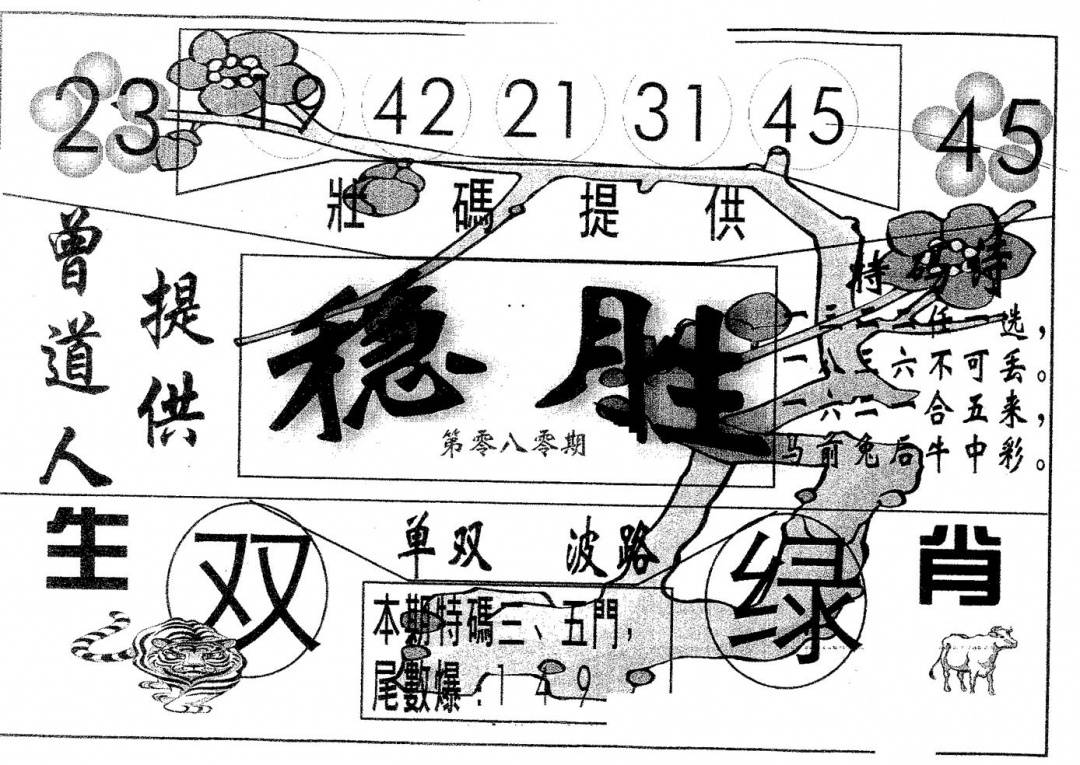 23 19 42 21 31 45 45
壯碼提供
曾道人
提供
特码诗
一三二六任一选，
一八三六不可丢。
一六二一合五来，
马前兔后牛中彩。
稳胜
第零八零期
生肖
单双 波路
双
绿
本期特碼三、五門，
尾數爆：1 4 9